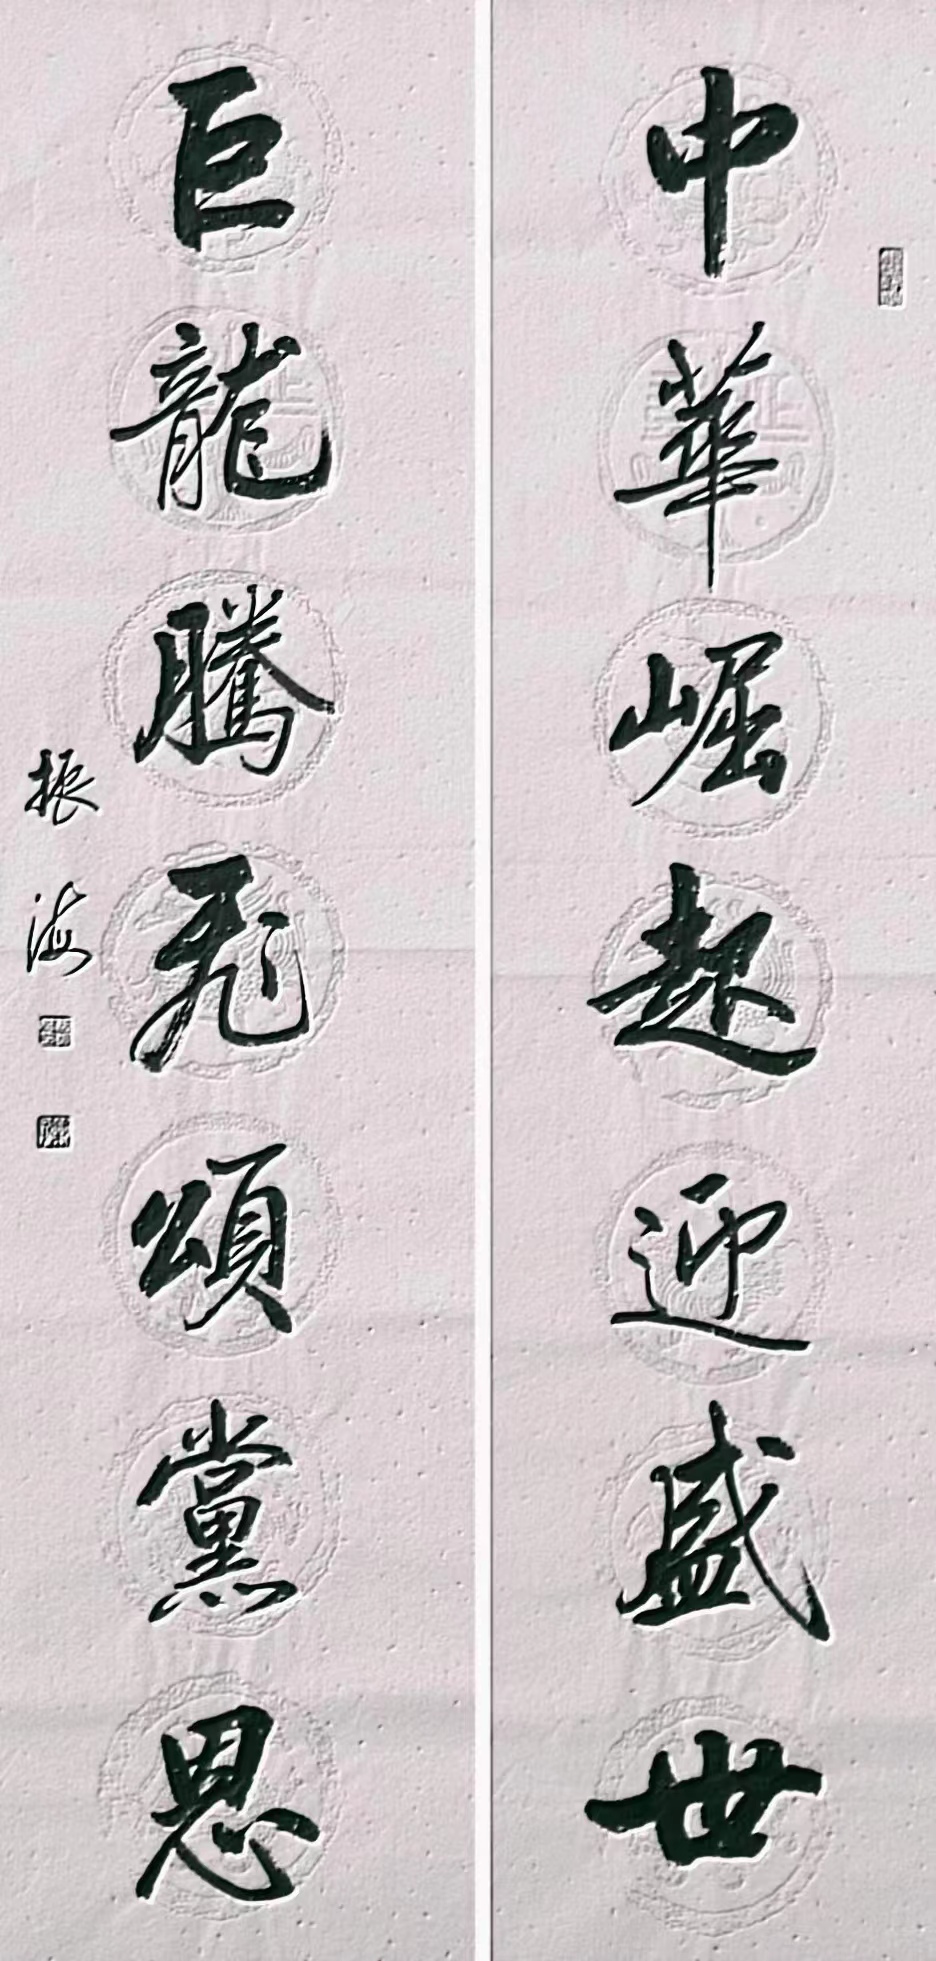 中華崛起迎盛世
巨龍騰飛頌黨恩
振海